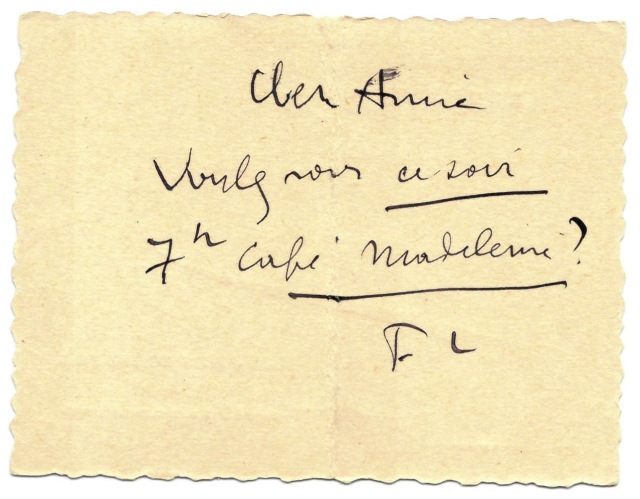 Cher Ami
Voulez vous ce soir
7h Café Madeleine?
FL